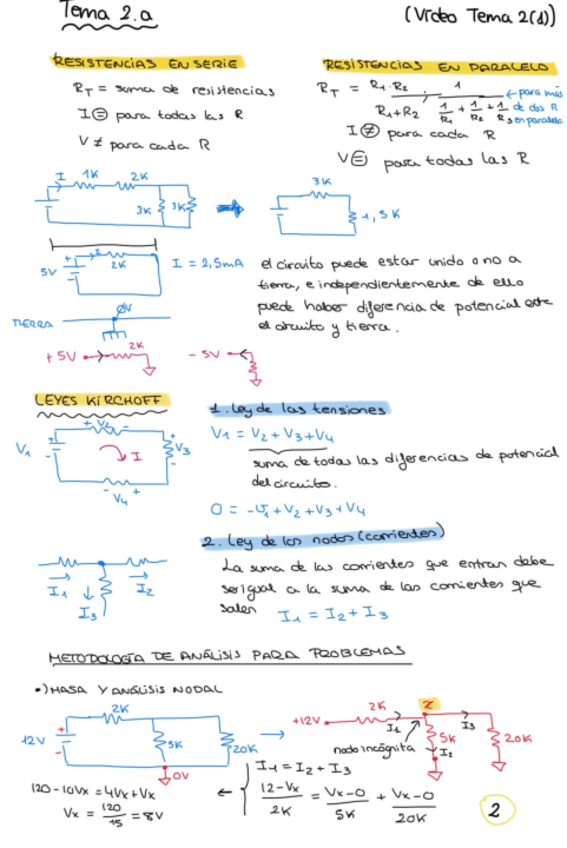 Tema 2.a
(Vídeo Tema 2(1))
RESISTENCIAS EN SERIE
RT = suma de resistencias
I = para todas las R
V ≠ para cada R
RESISTENCIAS EN PARALELO
RT = R1·R2 / R1+R2 ; 1 / 1/R1 + 1/R2 + 1/R3 ← para más de dos R en paralelo
I ≠ para cada R
V = para todas las R
I 1K 2K
3K 3K
3K
1,5K
5V + - I 2K
I = 2,5mA
el circuito puede estar unido o no a
tierra, e independientemente de ello
puede haber diferencia de potencial entre
el circuito y tierra.
0V
TIERRA
+5V 2K
-5V
LEYES KIRCHOFF
V1 + - + V2 - + V3 - - V4 + I
1. Ley de las tensiones
V1 = V2 + V3 + V4
suma de todas las diferencias de potencial
del circuito.
0 = -V1 + V2 + V3 + V4
2. Ley de los nodos (corrientes)
La suma de las corrientes que entran debe
ser igual a la suma de las corrientes que
salen I1 = I2 + I3
I1 I2
I3
METODOLOGÍA DE ANÁLISIS PARA PROBLEMAS
•) MASA Y ANÁLISIS NODAL
12V + - 2K
5K 20K
0V
+12V 2K x
I1 I3
5K 20K
nodo incógnita I2
I1 = I2 + I3
12-Vx / 2K = Vx-0 / 5K + Vx-0 / 20K
120-10Vx = 4Vx+Vx ←
Vx = 120/15 = 8V
2